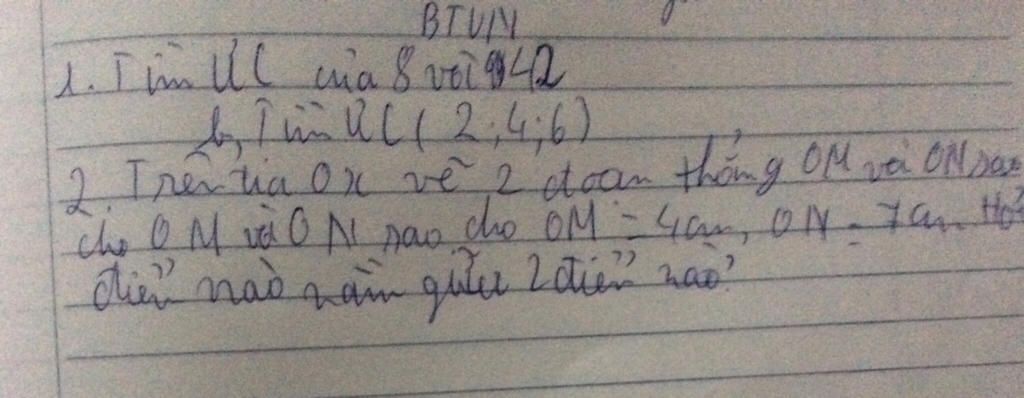 BTVN
1. Tìm ƯC của 8 với 42
b, Tìm ƯC( 2;4;6)
2. Trên tia Ox vẽ 2 đoan thẳng OM và ON sao
cho OM và ON sao cho OM = 4cm, ON = 7cm. Hỏi
điểm nào nằm giữa 2 điểm nào?